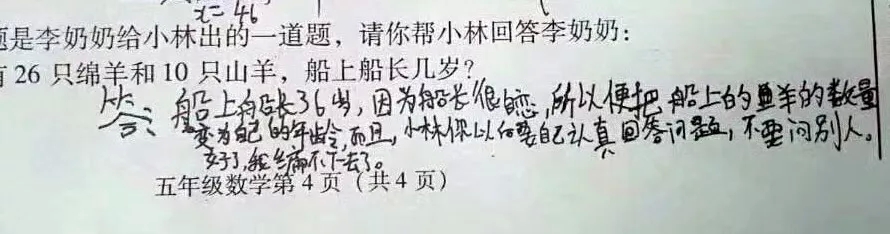 x=46
题是李奶奶给小林出的一道题，请你帮小林回答李奶奶：
有26只绵羊和10只山羊，船上船长几岁？
答：船上船长36岁，因为船长很自恋，所以便把船上的羊的数量
变为自己的年龄，而且，小林你以后要自己认真回答问题，不要问别人。
好了，编不下去了。
五年级数学第4页（共4页）